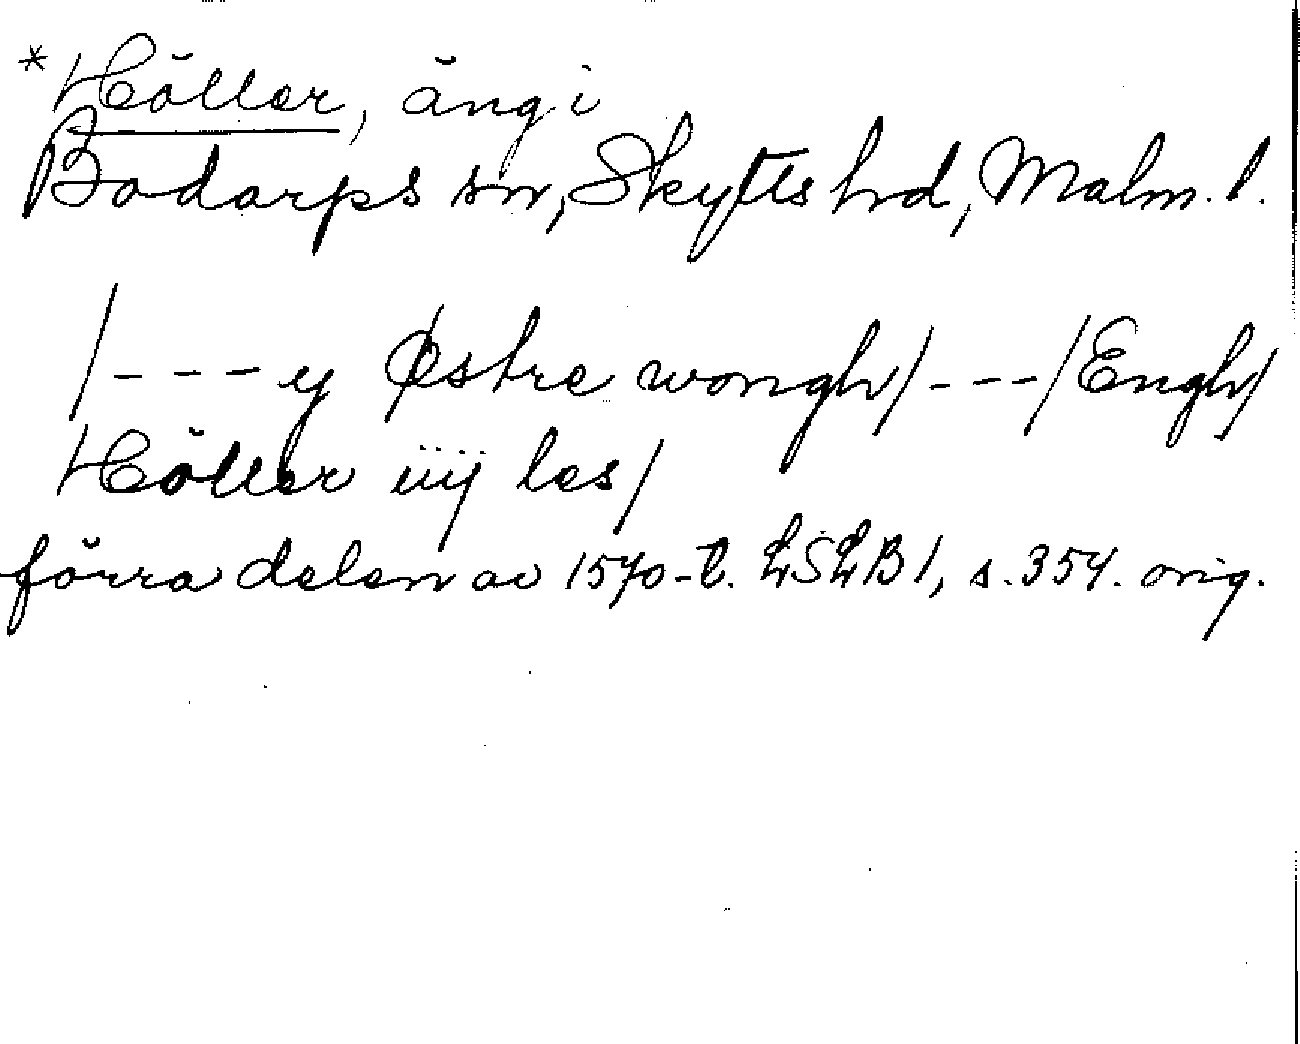 *Höller, äng i
Bodarps sn, Skytts hd, Malm. l.
/---y Østre wongh/---/Engh/
Höller iiij les/
förra delen av 1570-t. LSLB1, s. 354. orig.